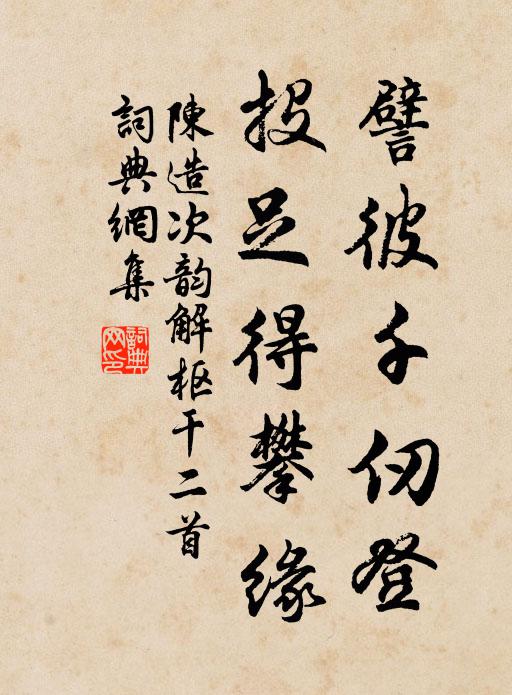 譬彼千仞登
投足得攀缘
陳造次韵解枢干二首
詞典網集
詞典
网印